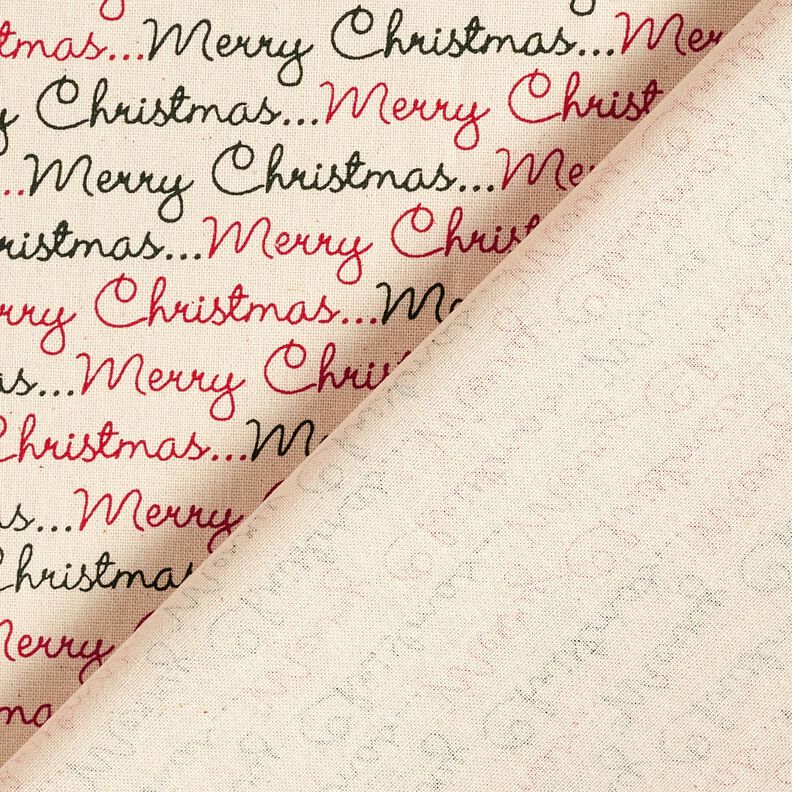 tmas...Merry Christmas...Mer
y Christmas...Merry Christ
...Merry Christmas...Me
ristmas...Merry Chris
rry Christmas...Me
as...Merry Chris
Christmas...M
s...Merry
Christmas
Merry
ma